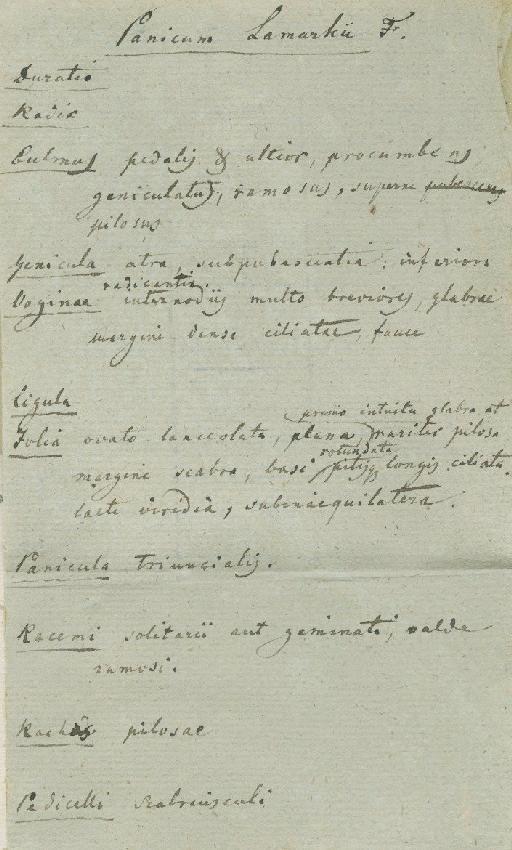 Panicum Lamarkii F.
Duratio
Radix
Culmus pedalis & ultior, procumbens
geniculatus, ramosus, superne pubescens
pilosus
Genicula atra, subpubescentia, inferiora
radicantia.
Vaginae internodijs multo breviores, glabrae
margine dense ciliatae, fauce
Ligula
primo intuitu glabra at
Folia ovato lanceolata, plana, pilosa
rotundata
margine scabra, basi pilis longis ciliata,
laete viridia, subinaequilatera.
Panicula triuncialis.
Racemi solitarii aut geminati, valde
ramosi.
Rachis pilosae
Pedicelli scabriusculi